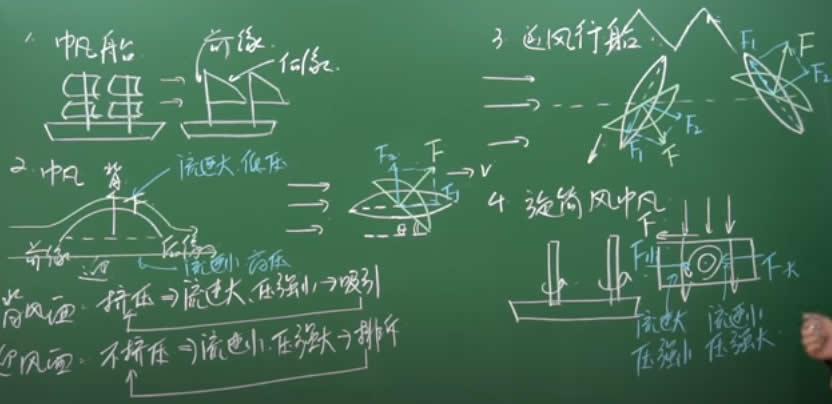 1. 巾凡船
前缘
后缘
2. 巾凡
背
F
流速大.低压
前缘
后缘
迎
流速小 高压
F₂
F
F₁
V
背风面: 挤压⇒流速大、压强小→吸引
迎风面: 不挤压⇒流速小.压强大→排斥
3. 逆风行船
F₁
F
F₂
F₂
F₁
F
4. 旋筒风巾凡
F
F小
F大
流速大
压强小
流速小
压强大